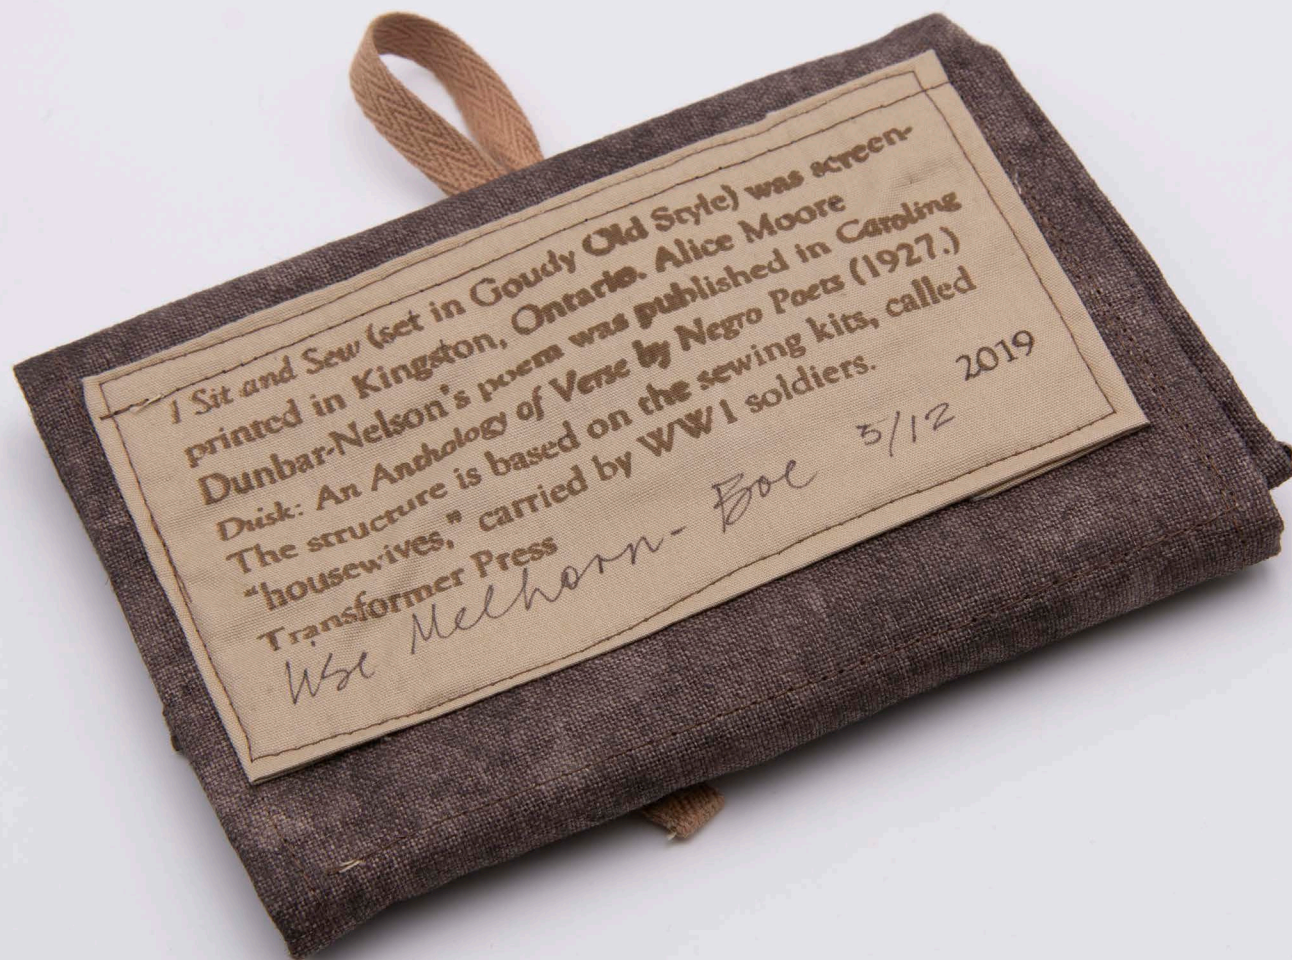 I Sit and Sew (set in Goudy Old Style) was screen-
printed in Kingston, Ontario. Alice Moore
Dunbar-Nelson's poem was published in Caroling
Dusk: An Anthology of Verse by Negro Poets (1927.)
The structure is based on the sewing kits, called
"housewives," carried by WW I soldiers.
Transformer Press 2019
Lise Melhorn-Boe 5/12